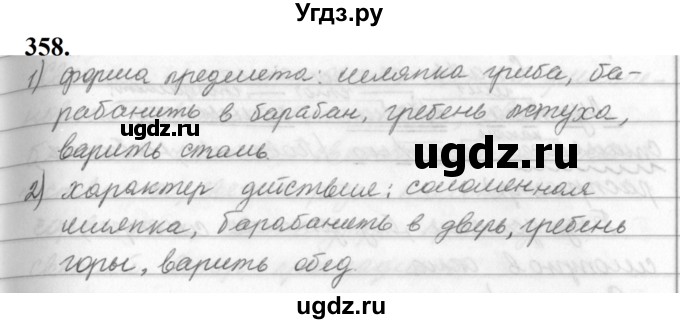 Угдз.ру
358.
1) форма предмета: шляпка гриба, ба-
рабанить в барабан, гребень петуха,
варить сталь.
2) характер действия: соломенная
шляпка, барабанить в дверь, гребень
горы, варить обед.
ugdz.ru
ugdz.ru
ugdz.ru
ugdz.ru